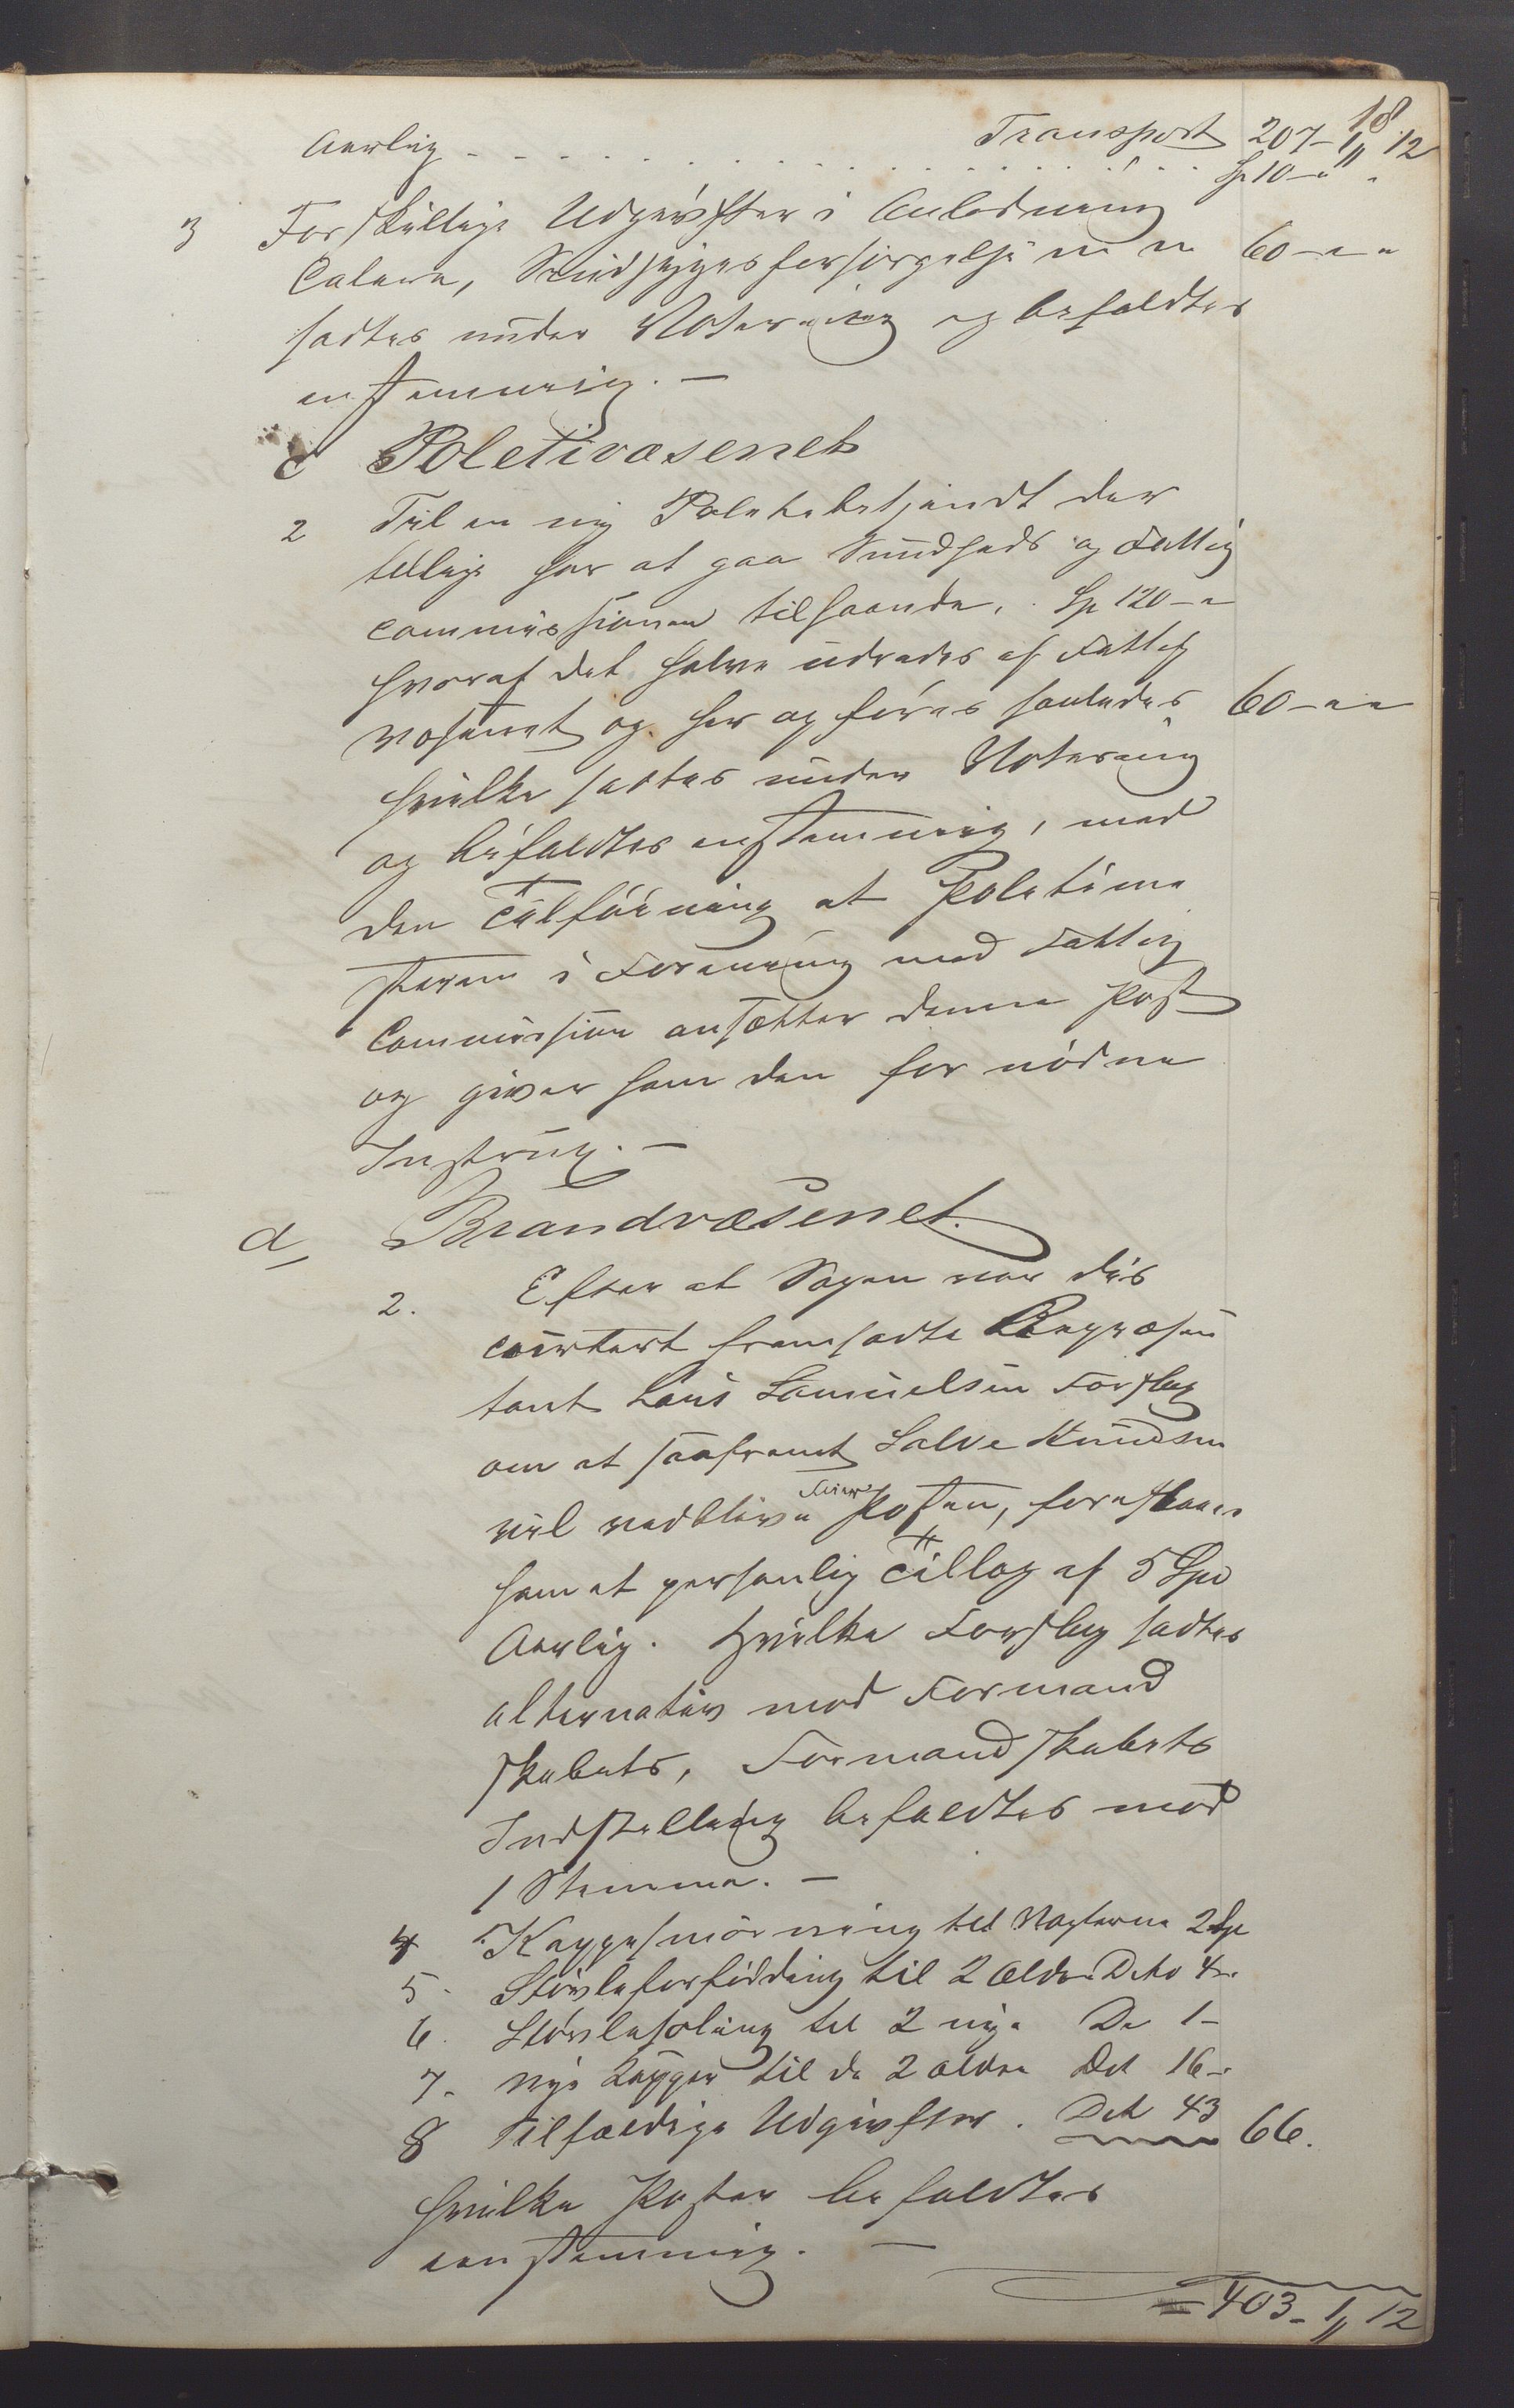 18
Transport 207-1"12
Aarlig . . . . . . . . . . . . Sp 10-" "
3 Forskjellige Udgivster i Anledning
Colera, Sindsygesforsörgelse m m 60-" "
sadtes under Votering og befaldtes
enstemmig. -
c Poletivæsenet
2 Til en ny Poletibetjendt der
tillige har at gaa Sundheds og Fattig
commissionen tilhaande. Sp 120-"
hvoraf det halve udredes af Fattig
væsenet og her opføres saaledes 60-" "
hvilke sattes under Votering
og bifaldtes enstemmig, med
den Tilföining at Poletime
steren i Forening med Fattig
Commission ansetter denne Post
og giver ham den for nödne
Instrux. -
d, Brandvæsenet.
2. Efter at Sagen var dis
courtert fremsadte Repræsen
tant Laus Samuelsen Forslag
om at saafremt Salve Knudsen
vil vedblive Feier Posten, foreslaaes
ham et personlig Tillæg af 5 Spd
Aarlig. Hvilke Forslag sadtes
alternativ mod Formand
skabets, Formandskabets
Indstelling befaldtes mod
1 Stemme. -
4 Kappesmörning til Vegterne 2 Sp
5- Stövleforfödding til 2 ældre Deto 4-"
6. Stövlesoling til 2 nye De 1-
7- nye Kapper til de 2 ældre Det 16-"
8 Tilfældige Udgivster. Det 43 66.
hvilke Poster befaldtes
enstemmig. -
= 403-1"12